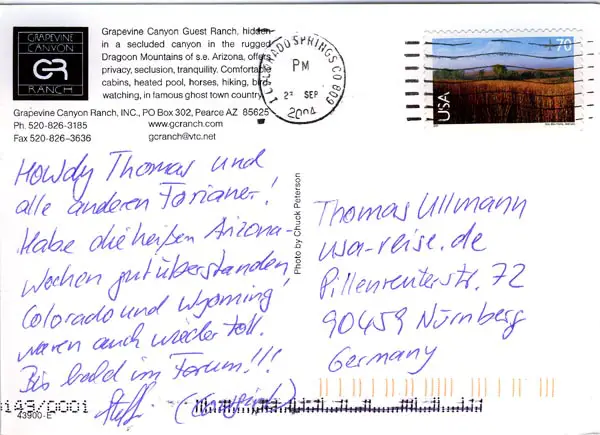 GRAPEVINE
CANYON
GR
RANCH
Grapevine Canyon Guest Ranch, hidden
in a secluded canyon in the rugged
Dragoon Mountains of s.e. Arizona, offers
privacy, seclusion, tranquility. Comfortable
cabins, heated pool, horses, hiking, bird
watching, in famous ghost town country.
Grapevine Canyon Ranch, INC., PO Box 302, Pearce AZ 85625
Ph. 520-826-3185 www.gcranch.com
Fax 520-826-3636 gcranch@vtc.net
COLORADO SPRINGS CO 809
PM
SEP
2004
70
USA
Howdy Thomas und
alle anderen Forianer!
Habe die heißen Arizona-
Wochen gut überstanden,
Colorado und Wyoming
waren auch wieder toll.
Bis bald im Forum!!!
Steffi
Photo by Chuck Peterson
Thomas Ullmann
usa-reise.de
Pillenreuterstr. 72
90459 Nürnberg
Germany
43900-E